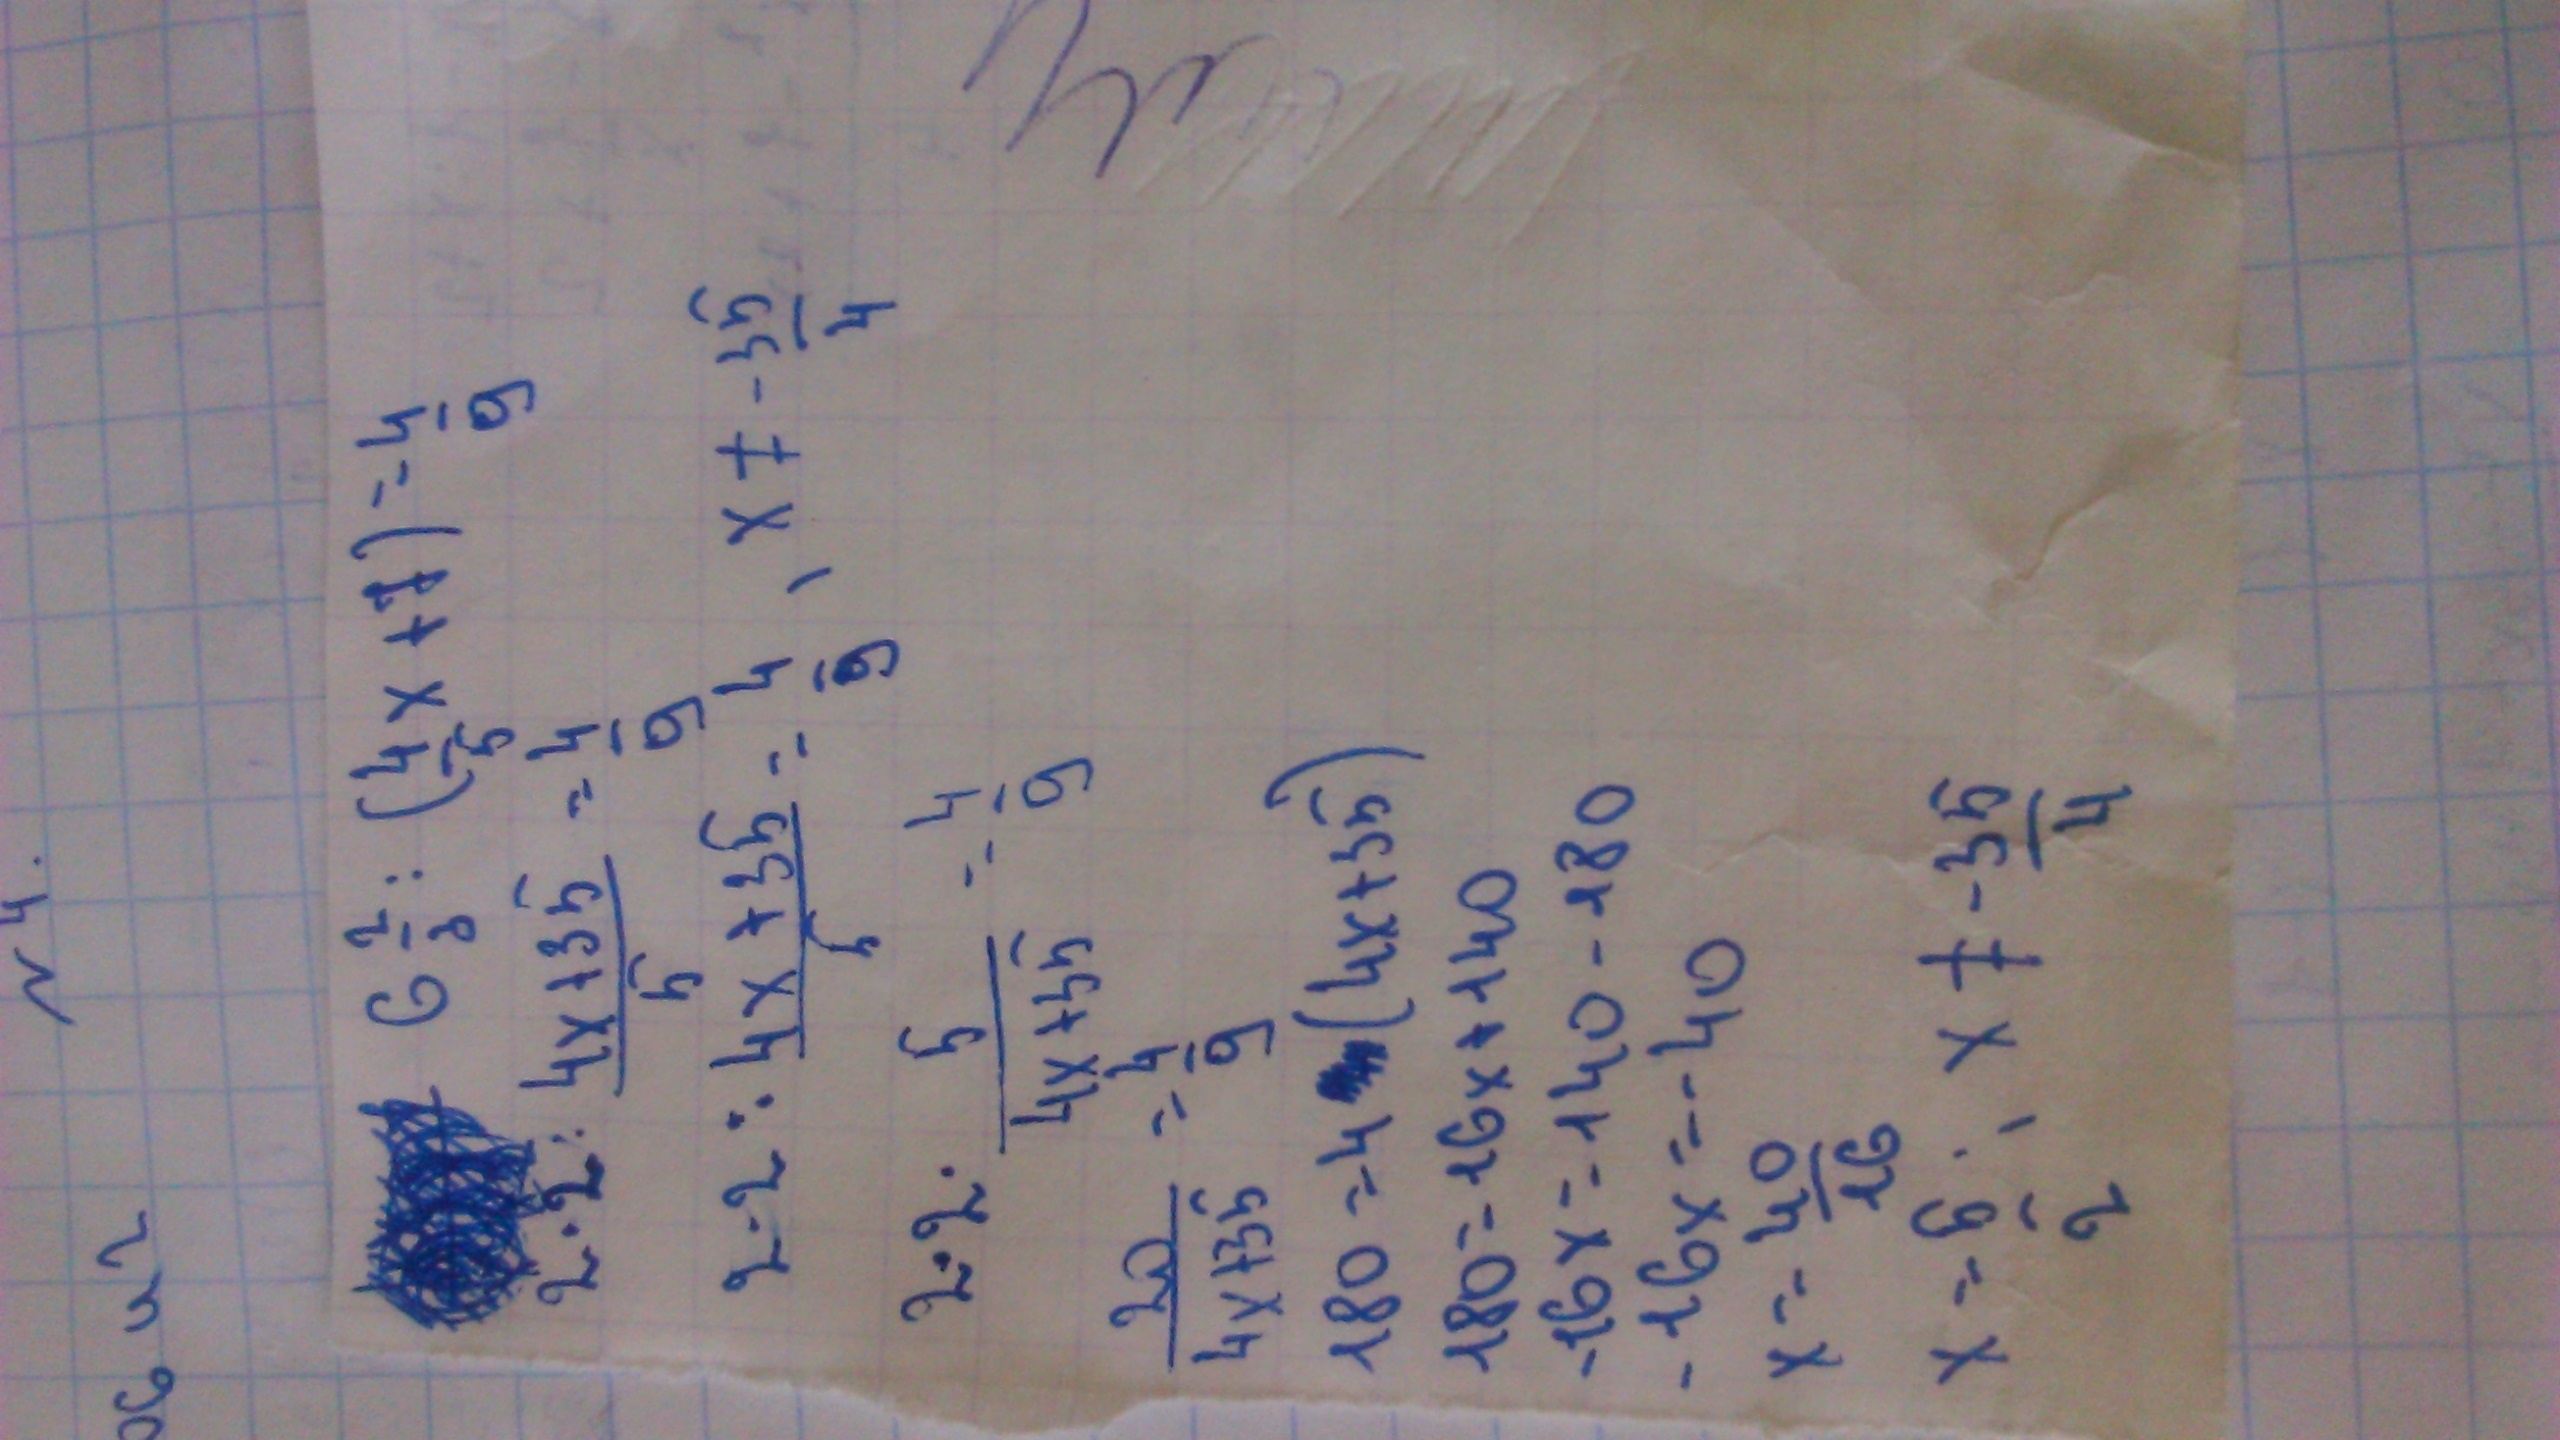 N 4.
6 2/3 : (4/5 x + 7) = 4/9
2·2 : (4x+35)/5 = 4/9
2·2 : (4x+35)/5 = 4/9 , x ≠ -35/4
2·2 · 5/(4x+35) = 4/9
20/(4x+35) = 4/9
180 = 4 (4x+35)
180 = 16x + 140
-16x = 140 - 180
-16x = -40
x = 40/16
x = 5/2 , x ≠ -35/4